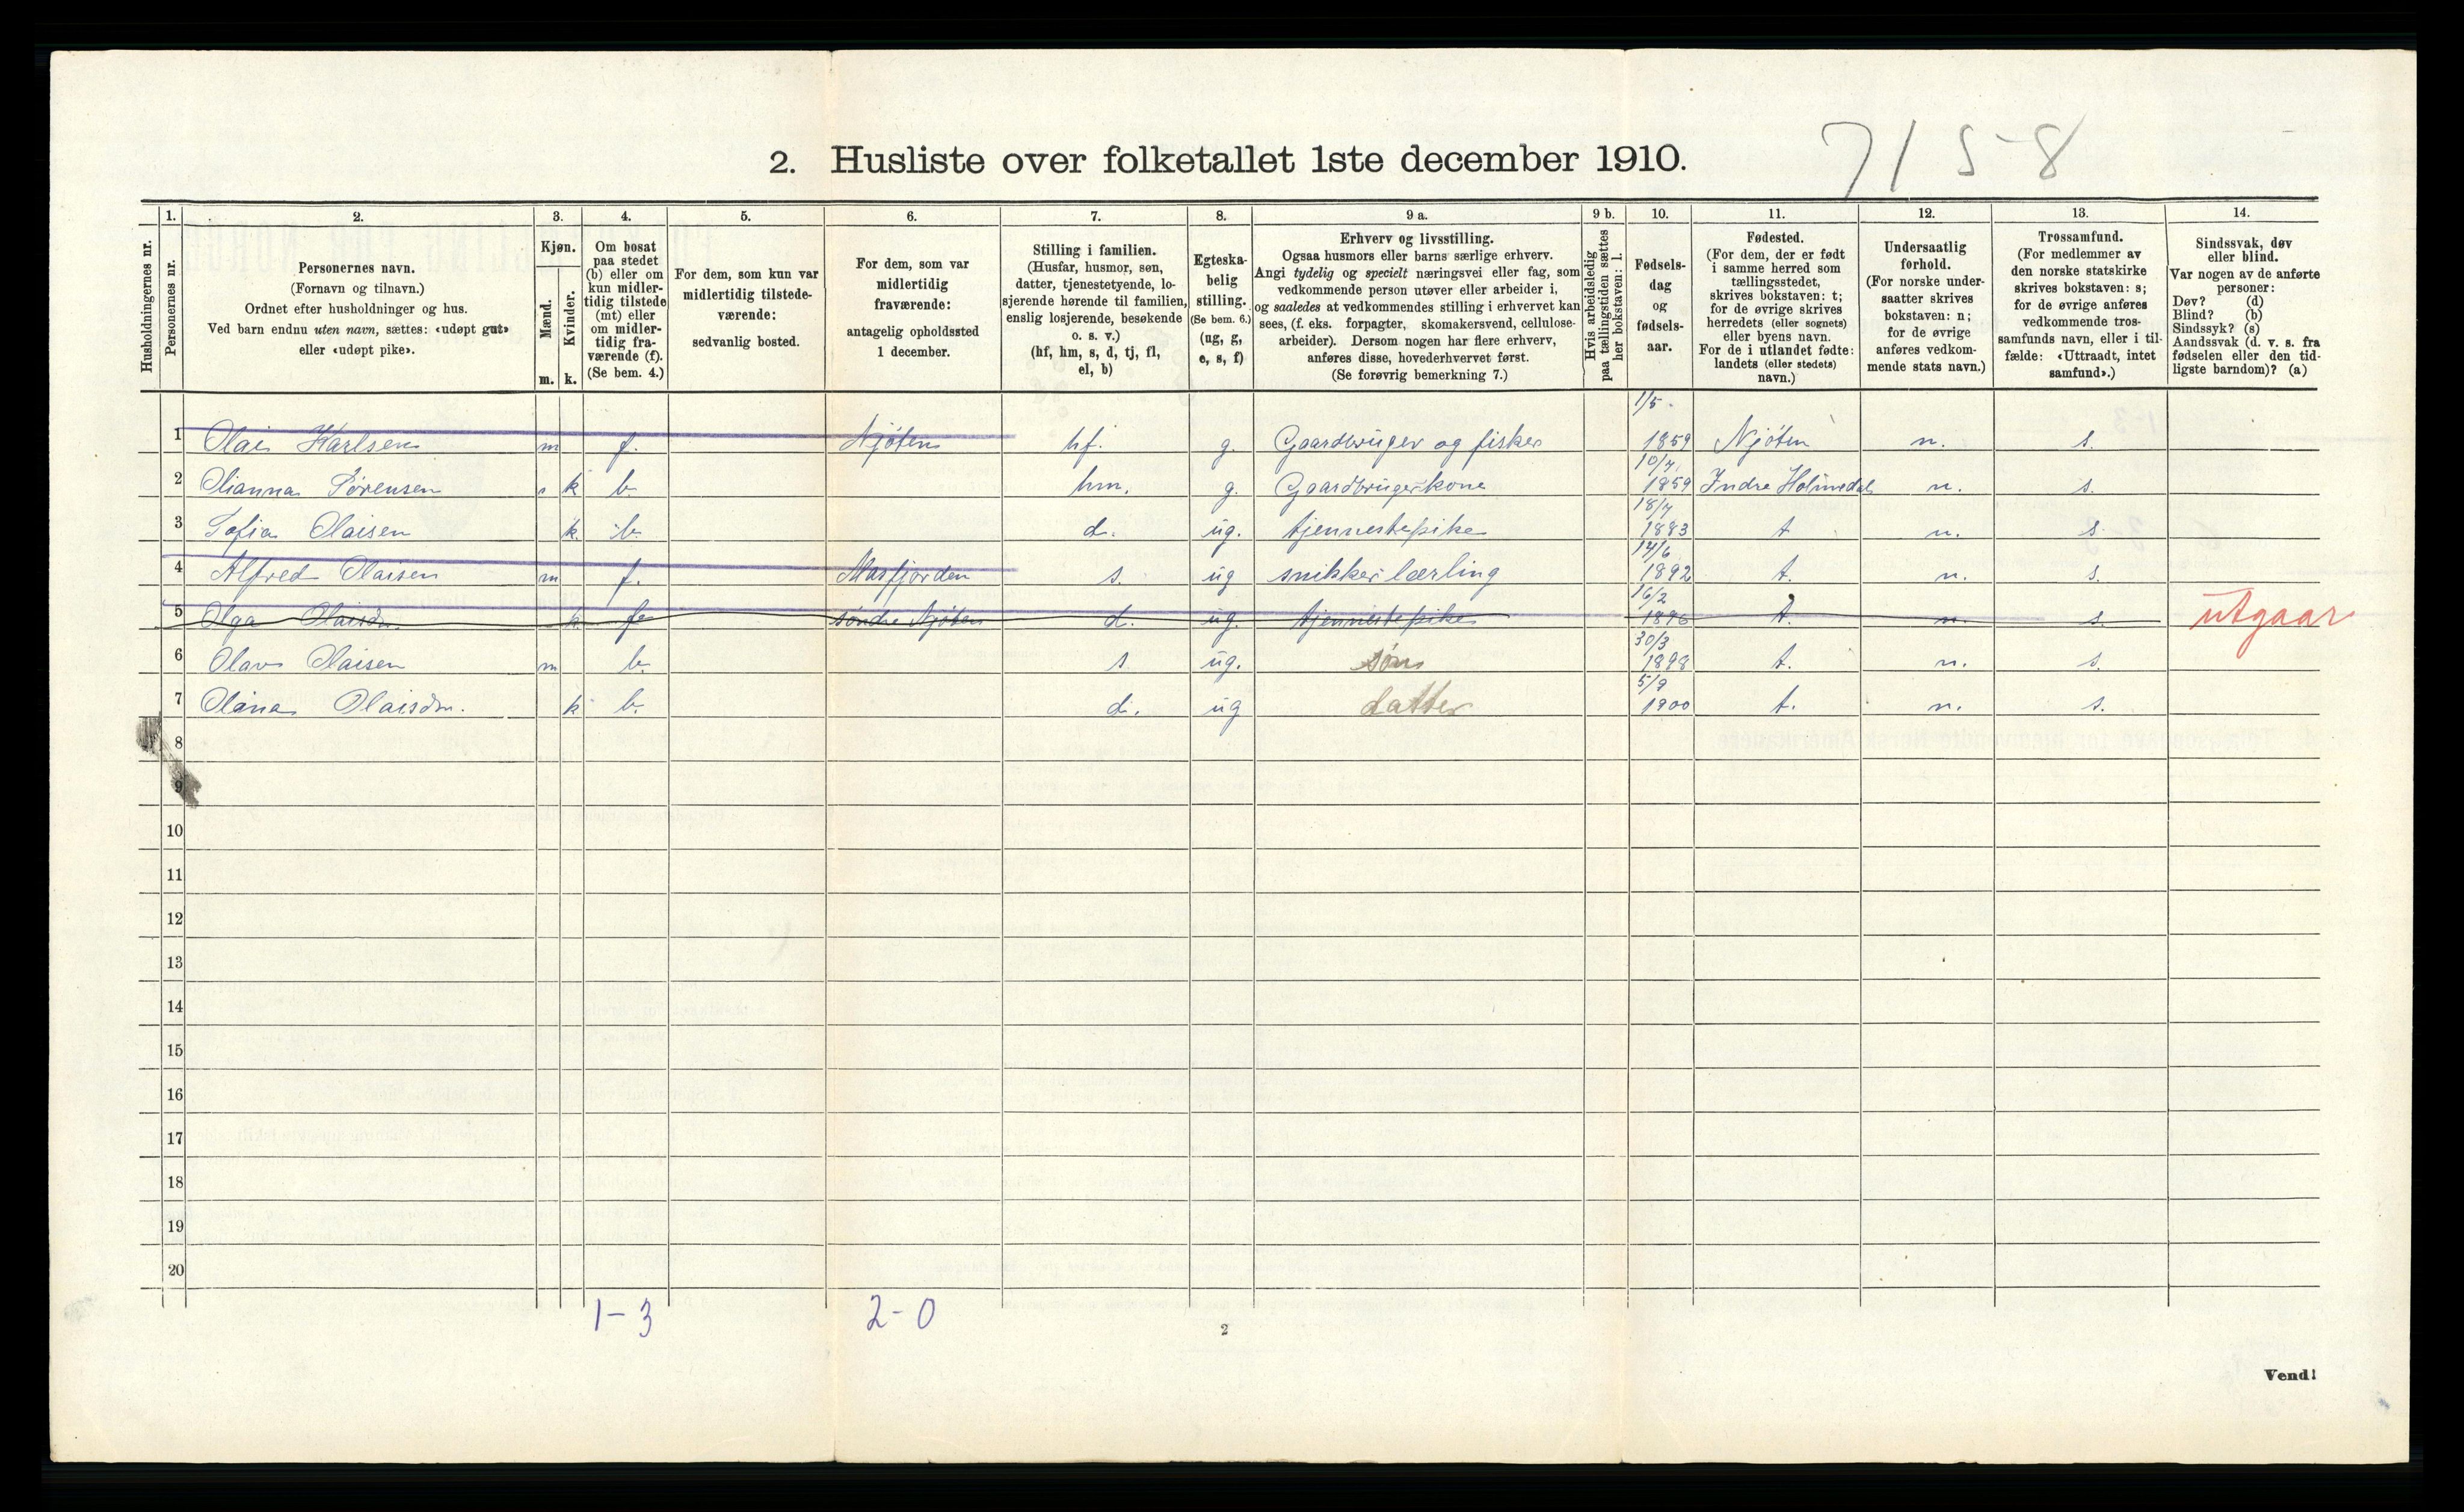 2. Husliste over folketallet 1ste december 1910.
7158
1. 2. 3. 4. 5. 6. 7. 8. 9 a. 9 b. 10. 11. 12. 13. 14.
Husholdningernes nr.
Personernes nr.
Personernes navn.
(Fornavn og tilnavn.)
Ordnet efter husholdninger og hus.
Ved barn endnu uten navn, sættes: «udøpt gut»
eller «udøpt pike».
Kjøn.
Mænd.
Kvinder.
m. k.
Om bosat
paa stedet
(b) eller om
kun midler-
tidig tilstede
(mt) eller
om midler-
tidig fra-
værende (f).
(Se bem. 4.)
For dem, som kun var
midlertidig tilstede-
værende:
sedvanlig bosted.
For dem, som var
midlertidig
fraværende:
antagelig opholdssted
1 december.
Stilling i familien.
(Husfar, husmor, søn,
datter, tjenestetyende, lo-
sjerende hørende til familien,
enslig losjerende, besøkende
o. s. v.)
(hf, hm, s, d, tj, fl,
el, b)
Egteska-
belig
stilling.
(Se bem. 6.)
(ug, g,
e, s, f)
Erhverv og livsstilling.
Ogsaa husmors eller barns særlige erhverv.
Angi tydelig og specielt næringsvei eller fag, som
vedkommende person utøver eller arbeider i,
og saaledes at vedkommendes stilling i erhvervet kan
sees, (f. eks. forpagter, skomakersvend, cellulose-
arbeider). Dersom nogen har flere erhverv,
anføres disse, hovederhvervet først.
(Se forøvrig bemerkning 7.)
Hvis arbeidsledig
paa tællingstiden sættes
her bokstaven: l.
Fødsels-
dag
og
fødsels-
aar.
Fødested.
(For dem, der er født
i samme herred som
tællingsstedet,
skrives bokstaven: t;
for de øvrige skrives
herredets (eller sognets)
eller byens navn.
For de i utlandet fødte:
landets (eller stedets)
navn.)
Undersaatlig
forhold.
(For norske under-
saatter skrives
bokstaven: n;
for de øvrige
anføres vedkom-
mende stats navn.)
Trossamfund.
(For medlemmer av
den norske statskirke
skrives bokstaven: s;
for de øvrige anføres
vedkommende tros-
samfunds navn, eller i til-
fælde: «Uttraadt, intet
samfund».)
Sindssvak, døv
eller blind.
Var nogen av de anførte
personer:
Døv? (d)
Blind? (b)
Sindssyk? (s)
Aandssvak (d. v. s. fra
fødselen eller den tid-
ligste barndom)? (a)
1 Olai Karlsen m f. Njöten hf. g. Gaardbruger og fisker 1/5 1859 Njöten n. s.
2 Olianna Sörensen k b. hm. g. Gaardbruger kone 10/4 1859 Indre Holmedal n. s.
3 Sofia Olaisen k b. d. ug. tjennestepike 18/4 1883 t n. s.
4 Alfred Olaisen m f. Masfjorden s. ug snikker lærling 14/6 1892 t. n. s.
5 Olga Olaisdr. k f söndre Njöten d. ug. tjennestepike 16/2 1896 t. n. s. utgaar
6 Olav Olaisen m b. s ug. søn 30/3 1898 t. n. s.
7 Olana Olaisdr. k b. d. ug datter 5/9 1900 t. n. s.
8
9
10
11
12
13
14
15
16
17
18
19
20
1-3 2-0
2
Vend!